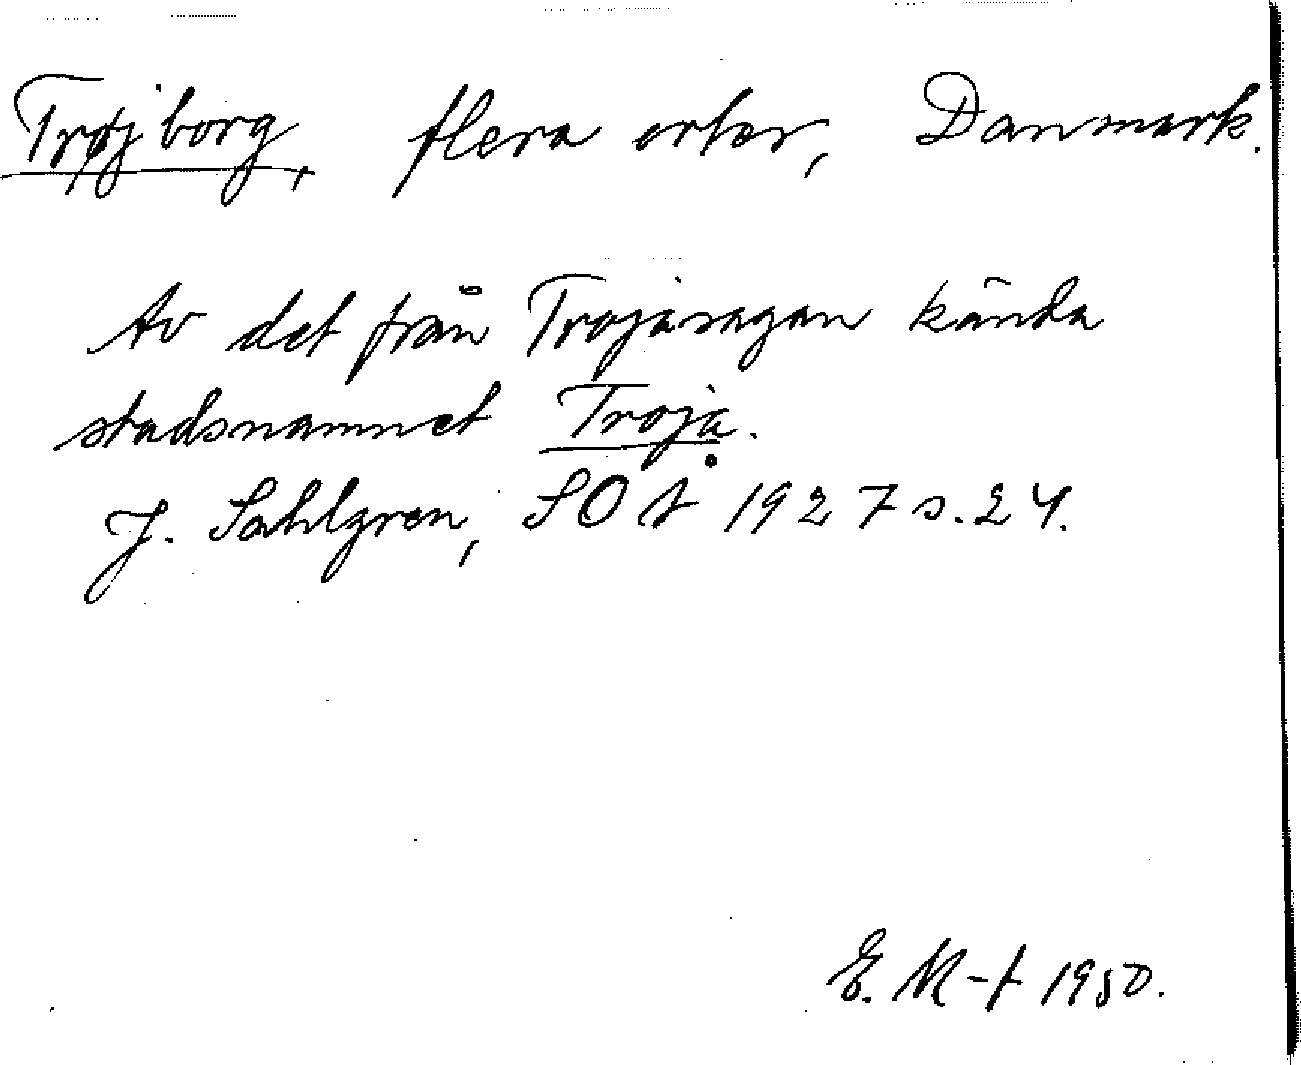 Trøjborg, flera orter, Danmark.
Av det från Trojasagan kända
stadsnamnet Troja.
J. Sahlgren, SOÅ 1927 s. 24.
E. M-t 1950.